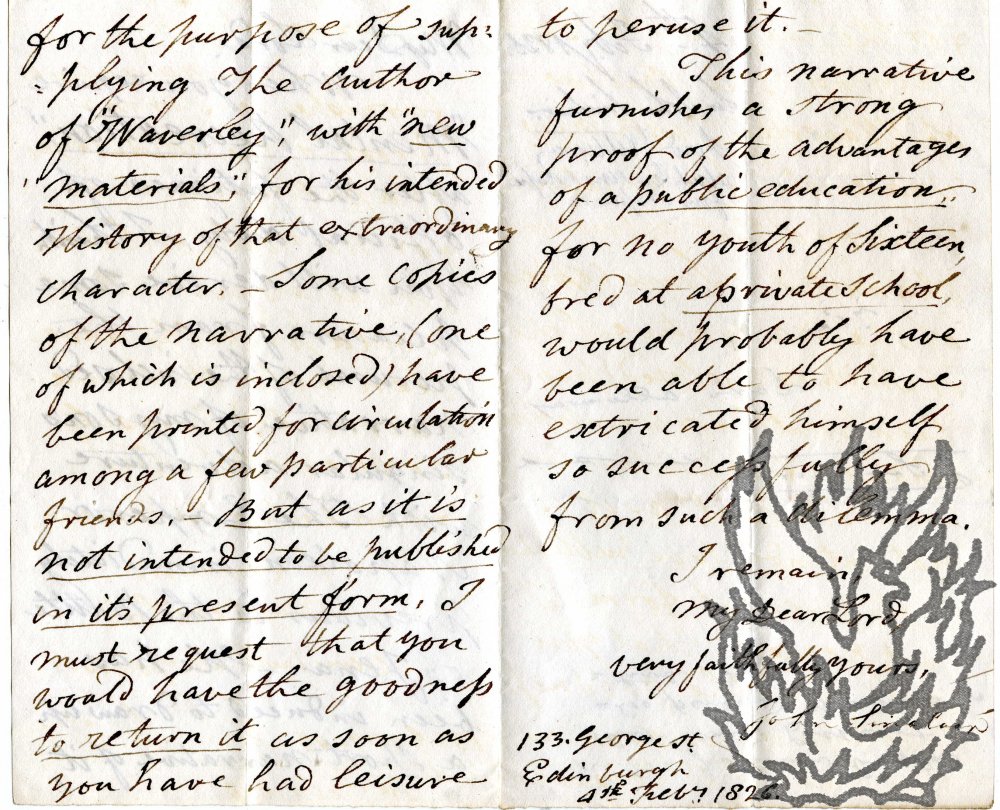 for the purpose of sup=
=plying The Author
of "Waverley", with "new
"materials", for his intended
History of that extraordinary
character. – Some Copies
of the narrative, (one
of which is inclosed) have
been printed for circulation
among a few particular
friends. – But as it is
not intended to be published
in it's present form, I
must request that you
would have the goodness
to return it as soon as
you have had leisure
to peruse it. –
This narrative
furnishes a strong
proof of the advantages
of a public education,
for no youth of Sixteen,
bred at a private School,
would probably have
been able to have
extricated himself
so successfully
from such a dilemma.
I remain,
My Dear Lord,
very faithfully yours,
John Sinclair
133. George St
Edinburgh
4th Feby 1826.